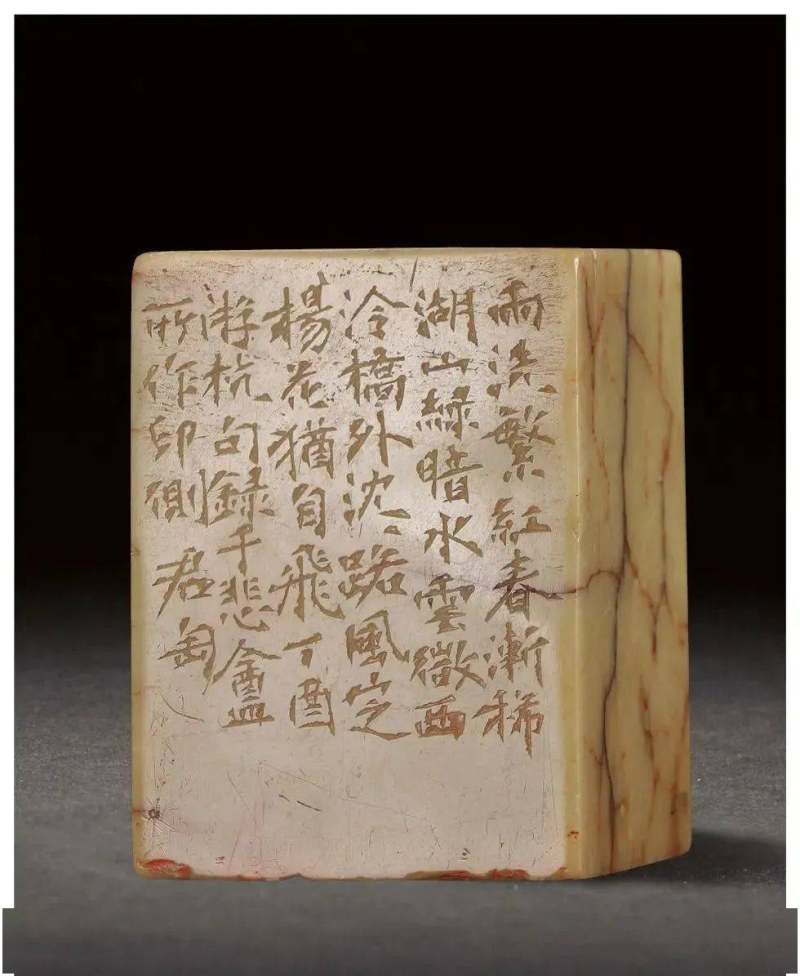 雨洗繁紅春漸稀
湖山緑暗水雲微西
泠橋外沈〻路風定
楊花猶自飛丁酉
游杭句録于悲盦
所作印側 君匋